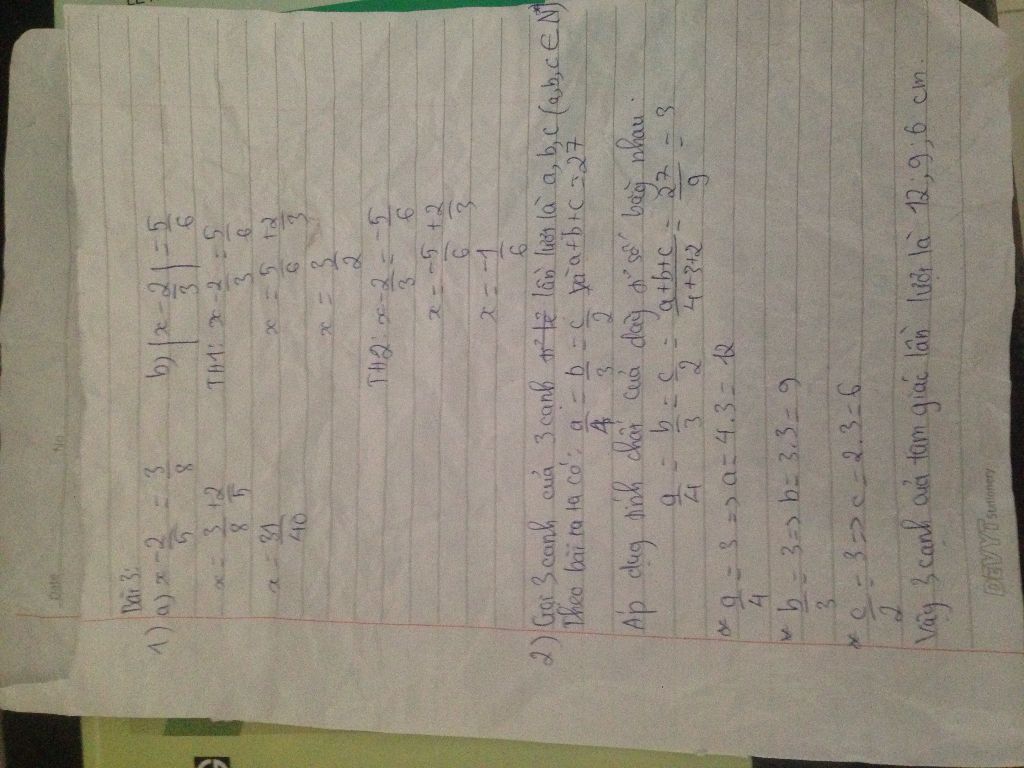 Bài 3:
1) a) x - 2/5 = 3/8
x = 3/8 + 2/5
x = 31/40
b) |x - 2/3| = 5/6
TH1: x - 2/3 = 5/6
x = 5/6 + 2/3
x = 3/2
TH2: x - 2/3 = -5/6
x = -5/6 + 2/3
x = -1/6
2) Gọi 3 cạnh của 3 cạnh lần lượt là a, b, c (a,b,c ∈ N*)
Theo bài ra ta có: a/4 = b/3 = c/2 và a+b+c = 27
Áp dụng tính chất của dãy tỉ số bằng nhau.
a/4 = b/3 = c/2 = a+b+c/4+3+2 = 27/9 = 3
* a/4 = 3 => a = 4.3 = 12
* b/3 = 3 => b = 3.3 = 9
* c/2 = 3 => c = 2.3 = 6
Vậy 3 cạnh của tam giác lần lượt là 12, 9, 6 cm.
Stationery